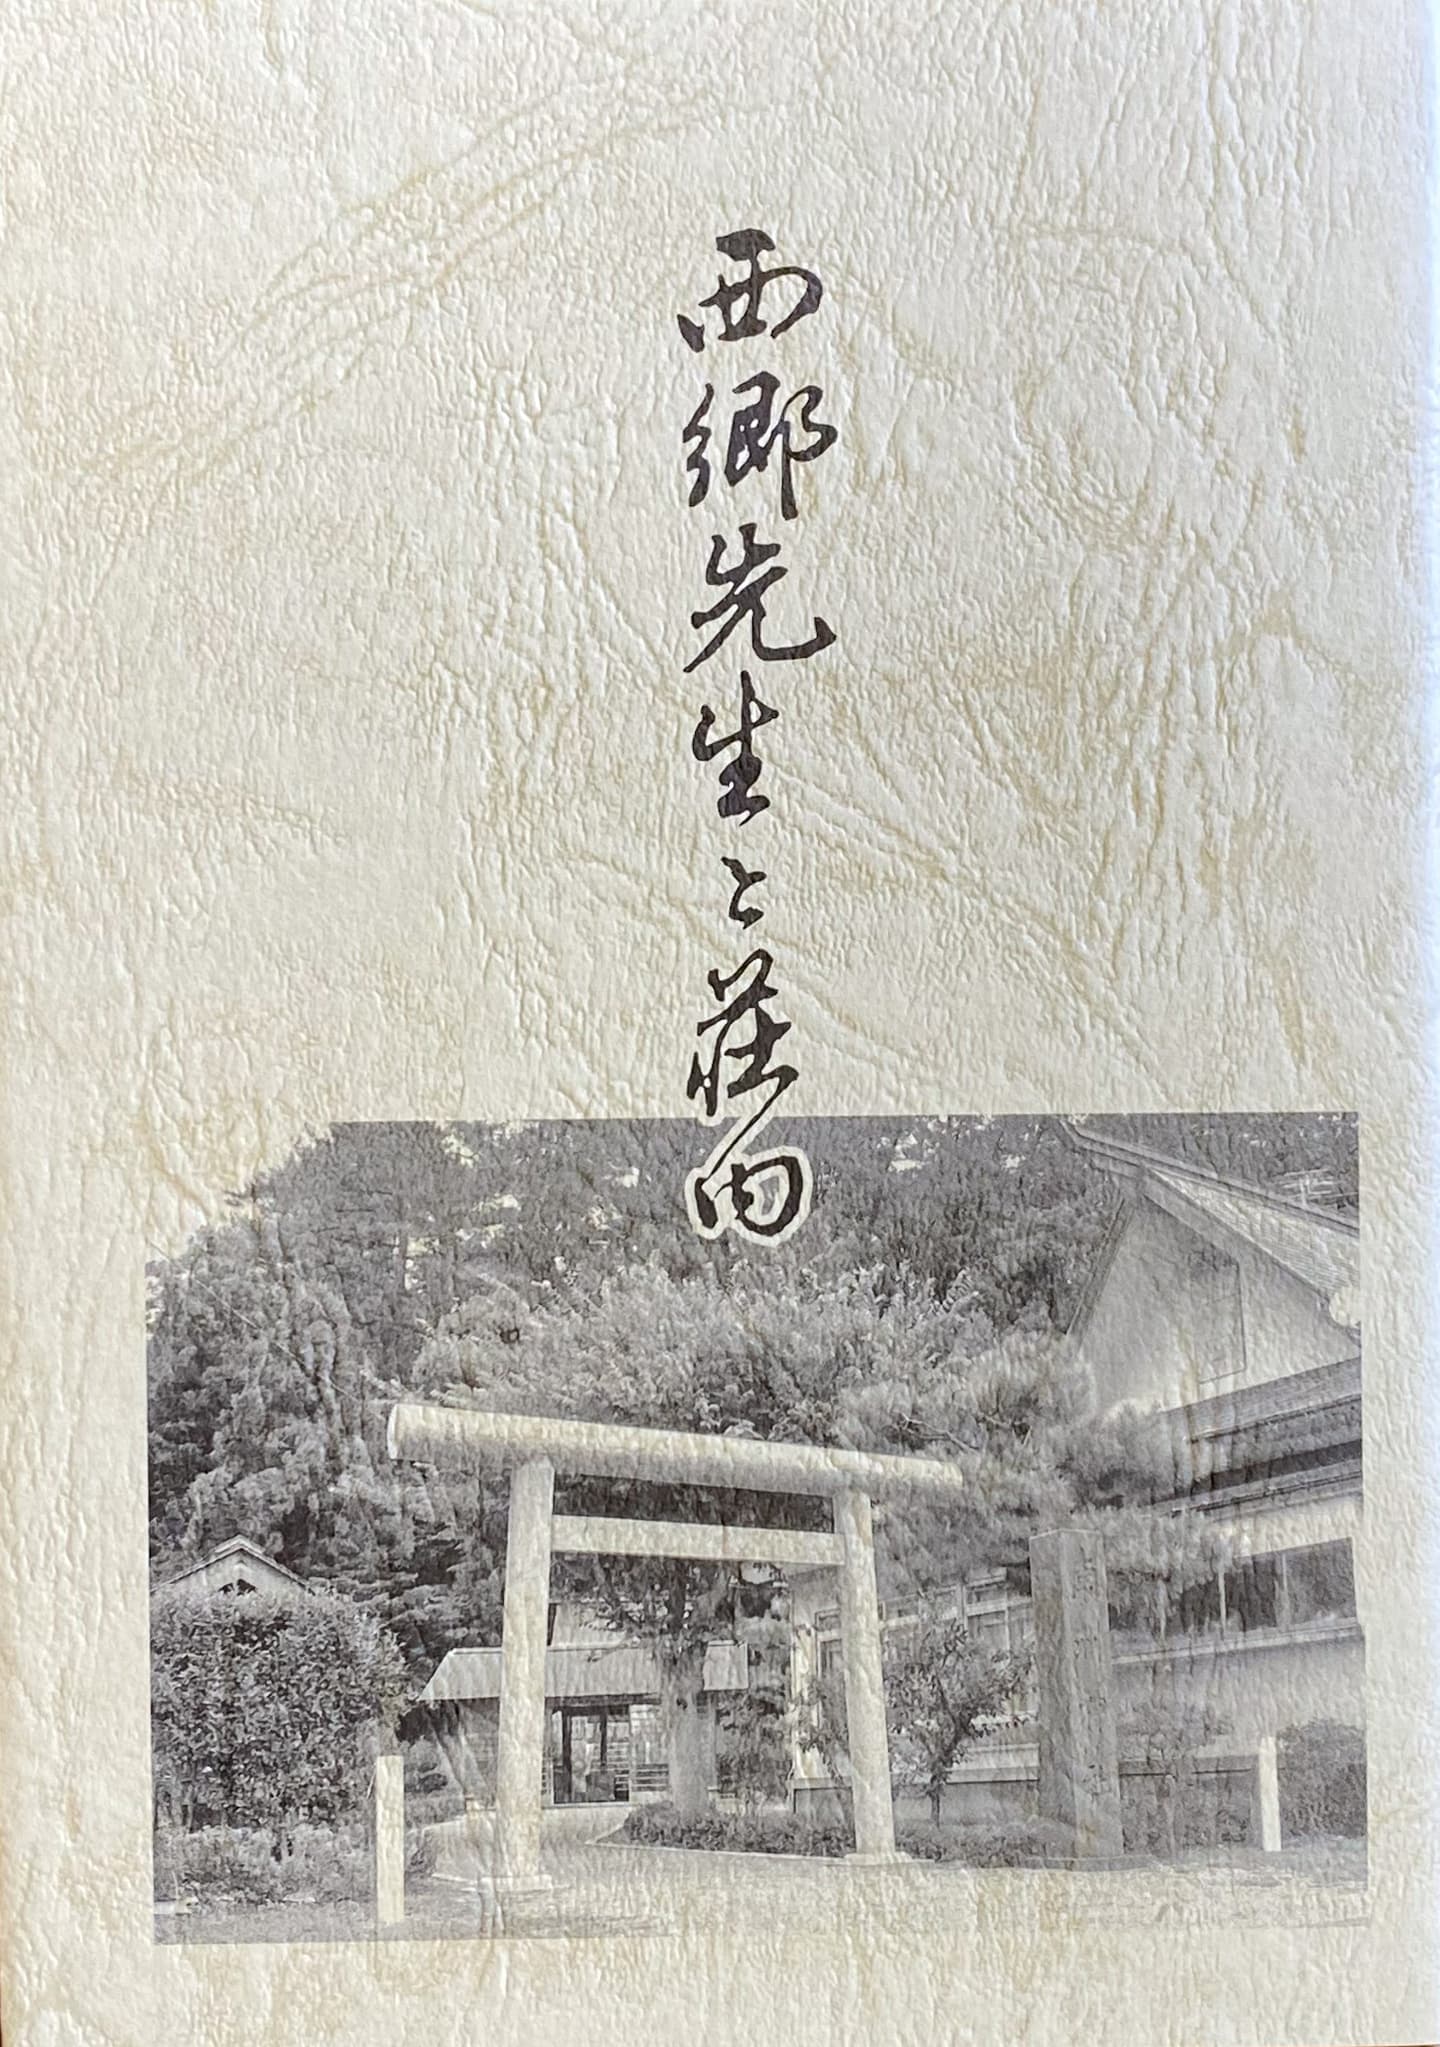 西郷先生と荘内